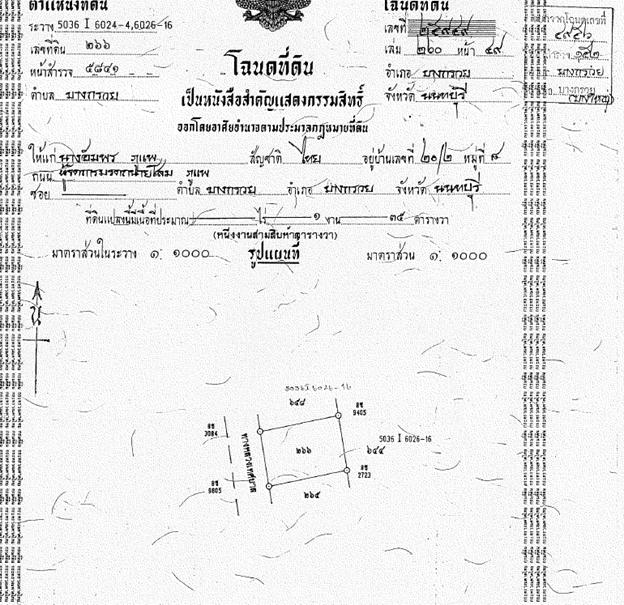 ตำแหน่งที่ดิน
โฉนดที่ดิน
ระวาง 5036 I 6024-4,6026-16
เลขที่
เลขที่ดิน ๒๖๖
เล่ม ๒๖๐ หน้า ๔๙
หน้าสำรวจ ๕๘๔๑
อำเภอ บางกรวย
ตำบล บางกรวย
จังหวัด นนทบุรี
โฉนดที่ดิน
เป็นหนังสือสำคัญแสดงกรรมสิทธิ์
ออกโดยอาศัยอำนาจตามประมวลกฎหมายที่ดิน
ให้แก่ นางอัมพร ภูแพ สัญชาติ ไทย อยู่บ้านเลขที่ ๒๐/๒ หมู่ที่ ๘
ถนน
ซอย ตำบล บางกรวย อำเภอ บางกรวย จังหวัด นนทบุรี
ที่ดินแปลงนี้มีเนื้อที่ประมาณ ไร่ ๑ งาน ๓๕ ตารางวา
(หนึ่งงานสามสิบห้าตารางวา)
มาตราส่วนในระวาง ๑: ๑๐๐๐ รูปแผนที่ มาตราส่วน ๑: ๑๐๐๐
น
5036 I 6026-16
๖๔๘
9405
3084
ทางหลวงเทศบาล
๒๖๖
5036 I 6026-16
๖๔๔
2723
9805
๒๖๕
บางกรวย
บางกรวย
(บางใหญ่)